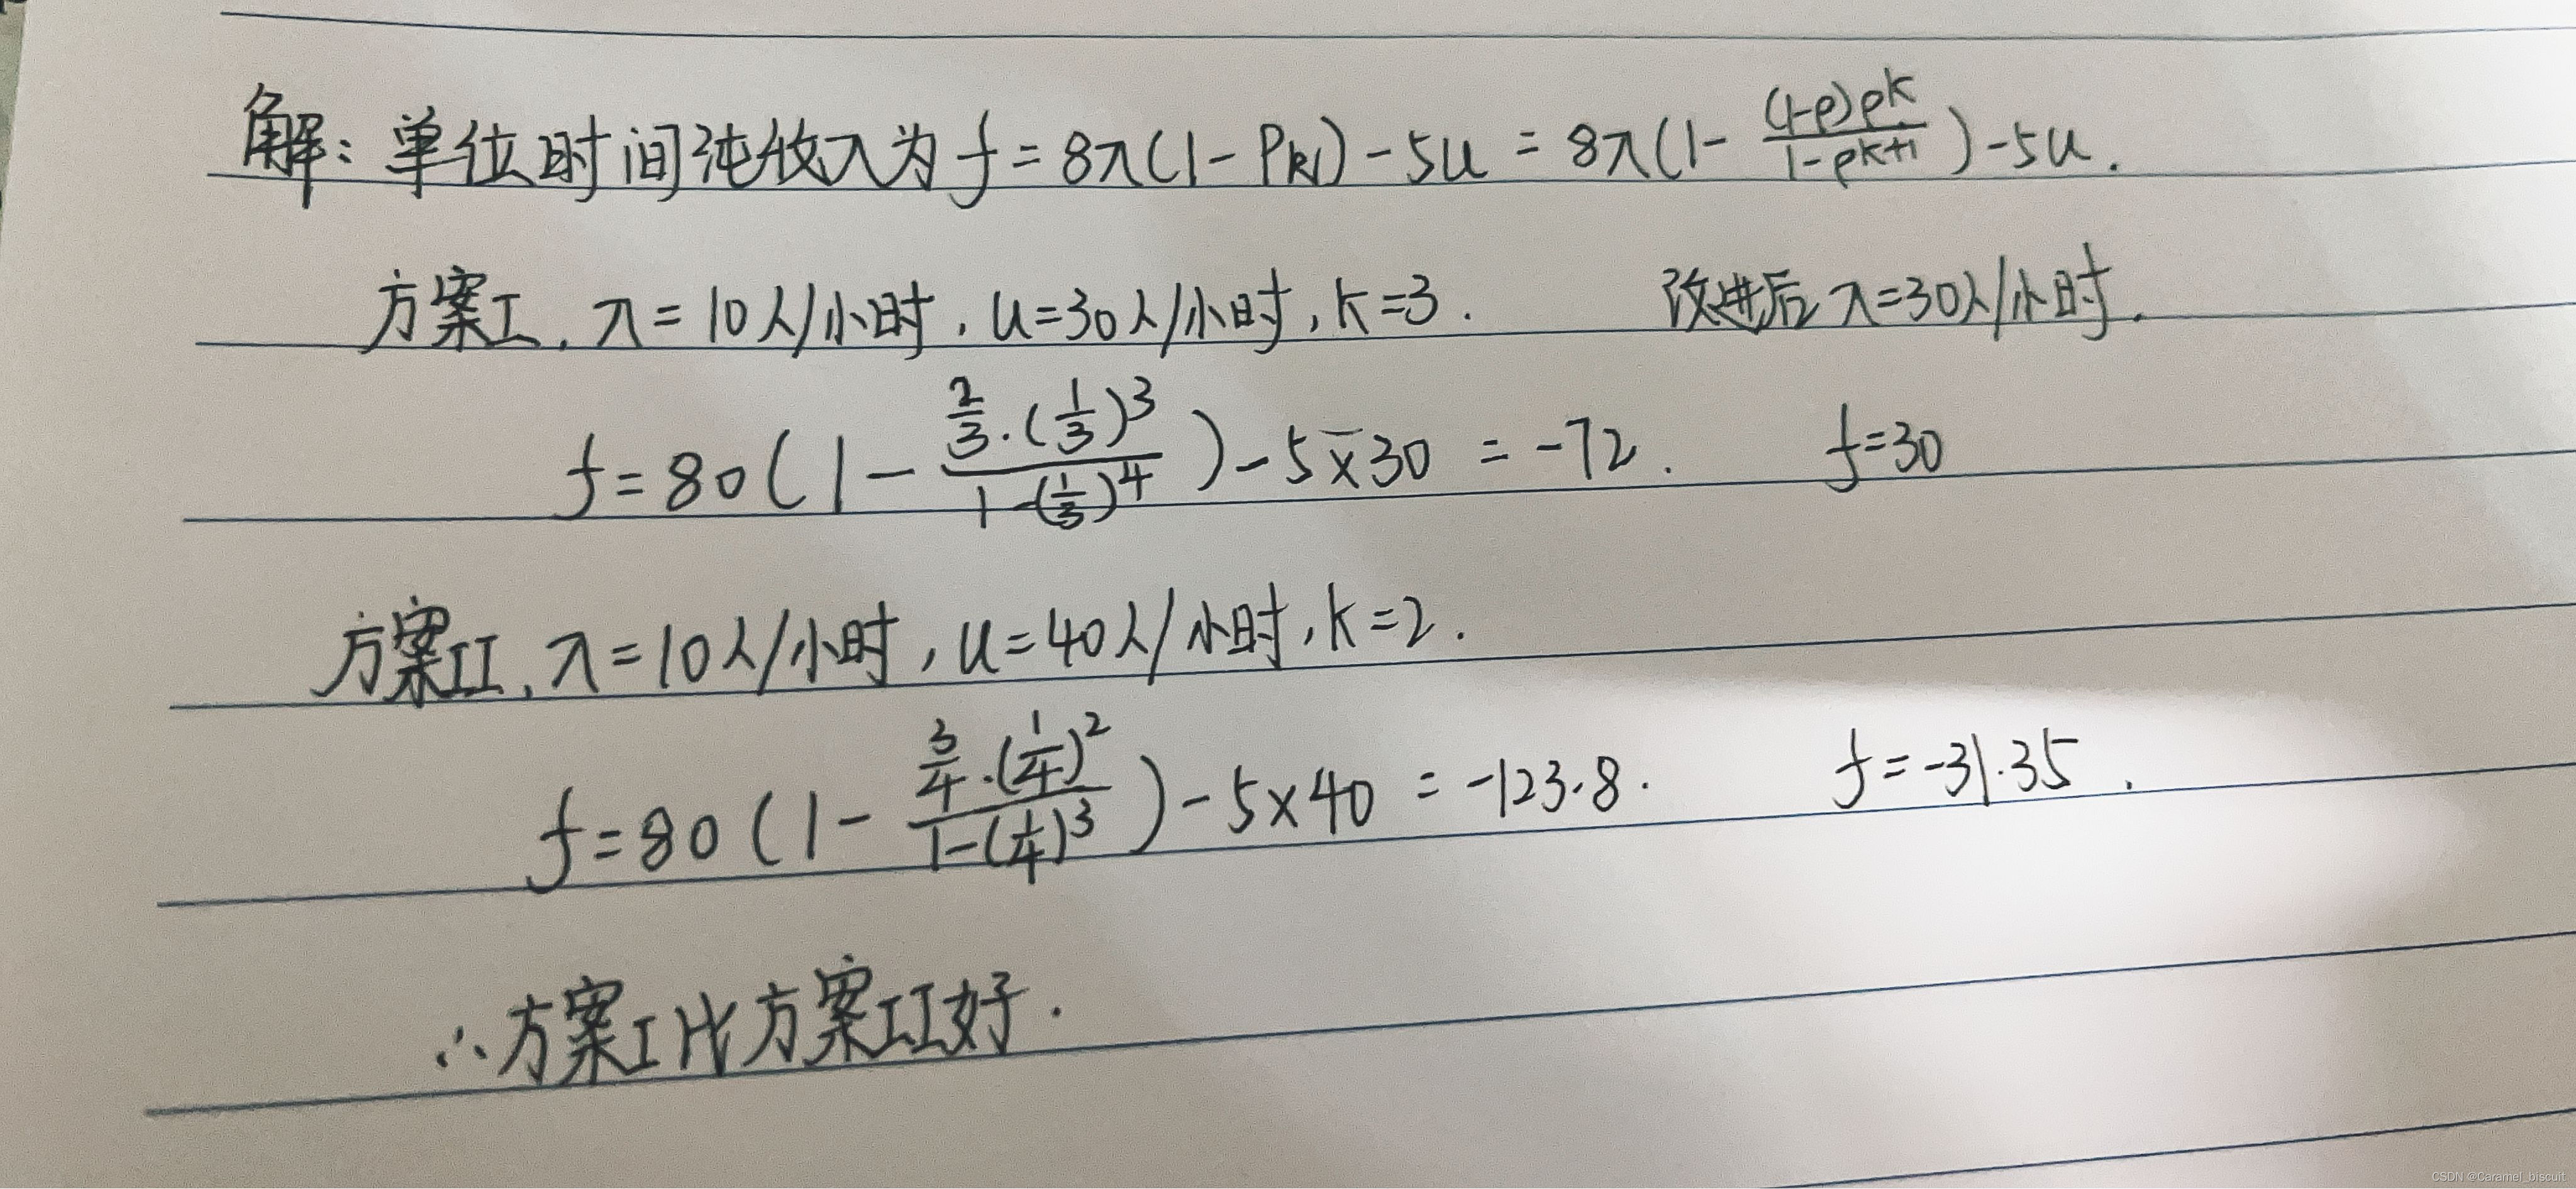 解：单位时间纯收入为 f = 8λ(1 - Pk) - 5u = 8λ(1 - \frac{(1-ρ)ρ^k}{1-ρ^{k+1}}) - 5u.
方案I, λ = 10人/小时, u=30人/小时, k=3. 改进后 λ=30人/小时.
f = 80(1 - \frac{\frac{2}{3}·(\frac{1}{3})^3}{1-(\frac{1}{3})^4}) - 5×30 = -72. f=30
方案II, λ=10人/小时, u=40人/小时, k=2.
f=80(1 - \frac{\frac{3}{4}·(\frac{1}{4})^2}{1-(\frac{1}{4})^3}) - 5×40 = -123.8. f=-31.35.
∴方案I比方案II好.
CSDN @Caramel_biscuit